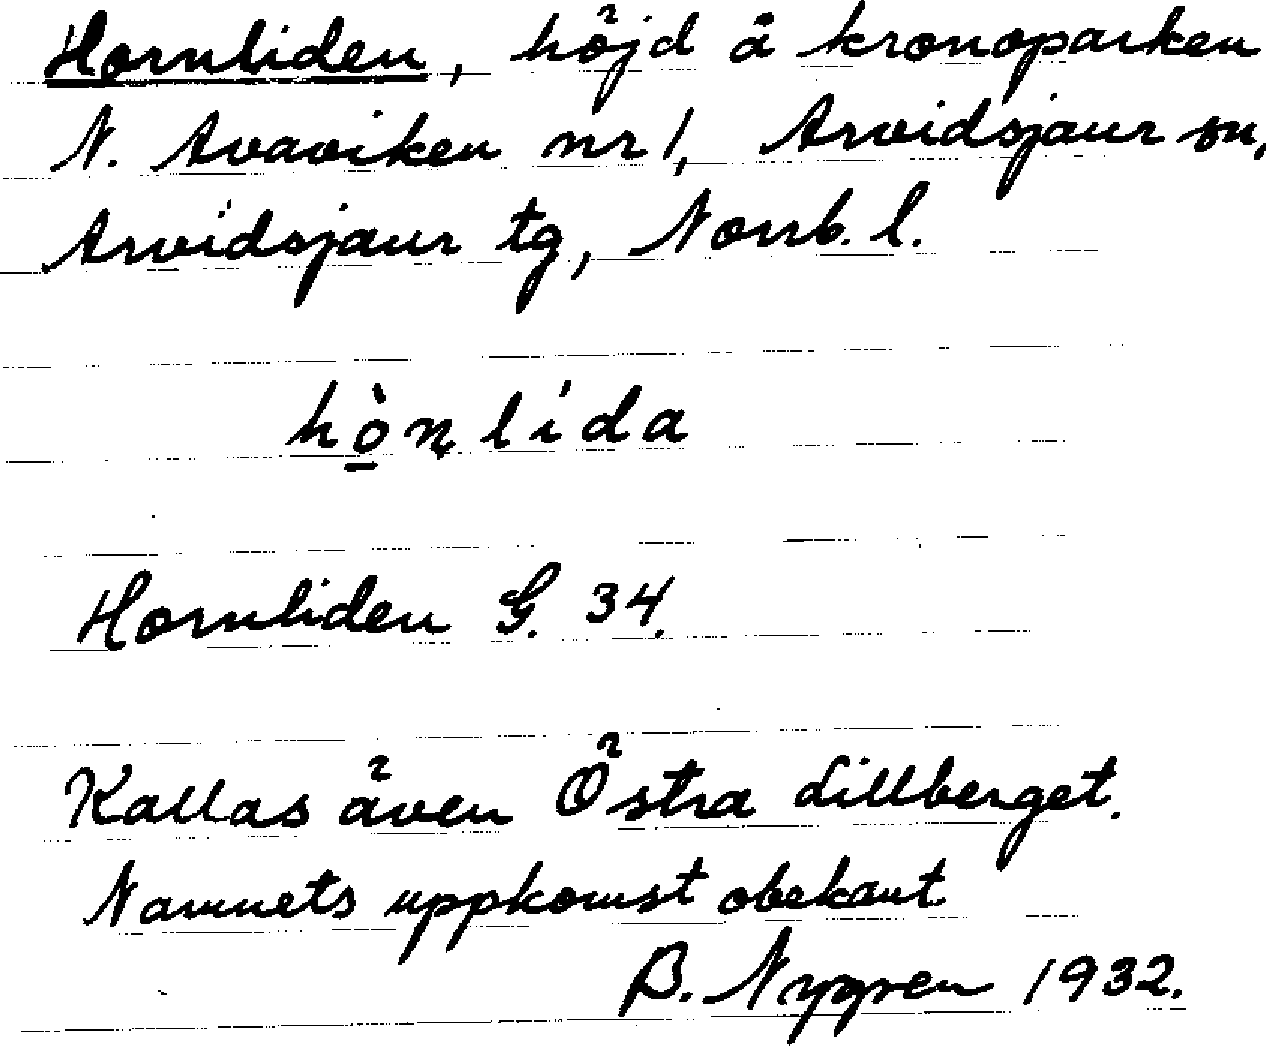 Hornliden, höjd å kronoparken
N. Avaviken nr 1, Arvidsjaur sn,
Arvidsjaur tg, Norrb. l.
hò̱ɳlída
Hornliden G. 34.
Kallas även Östra Lillberget.
Namnets uppkomst obekant
B. Nygren 1932.